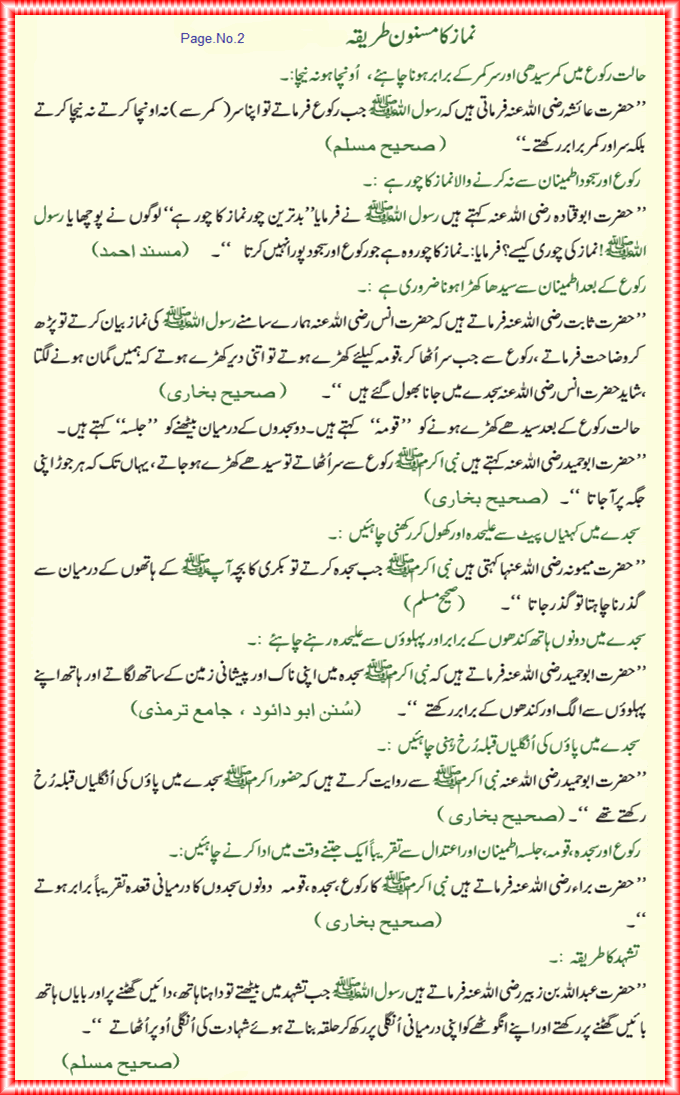 نماز کا مسنون طریقہ
Page.No.2
حالت رکوع میں کمر سیدھی اور سر کمر کے برابر ہونا چاہئے ، اُونچا ہو نہ نیچا:۔
’’حضرت عائشہ رضی اللہ عنہ فرماتی ہیں کہ رسول اللہ ﷺ جب رکوع فرماتے تو اپنا سر ( کمر سے ) نہ اونچا کرتے نہ نیچا کرتے
بلکہ سر اور کمر برابر رکھتے ۔‘‘ ( صحیح مسلم )
رکوع اور سجود اطمینان سے نہ کرنے والا نماز کا چور ہے :۔
’’ حضرت ابوقتادہ رضی اللہ عنہ کہتے ہیں رسول اللہ ﷺ نے فرمایا ’’بدترین چور نماز کا چور ہے‘‘ لوگوں نے پوچھا یا رسول
اللہ ﷺ! نماز کی چوری کیسے؟ فرمایا:۔ نماز کا چور وہ ہے جو رکوع اور سجود پورا نہیں کرتا ‘‘۔ (مسند احمد)
رکوع کے بعد اطمینان سے سیدھا کھڑا ہونا ضروری ہے :۔
’’حضرت ثابت رضی اللہ عنہ فرماتے ہیں کہ حضرت انس رضی اللہ عنہ ہمارے سامنے رسول اللہ ﷺ کی نماز بیان کرتے تو پڑھ
کر وضاحت فرماتے ، رکوع سے جب سر اُٹھا کر ، قومہ کیلئے کھڑے ہوتے تو اتنی دیر کھڑے ہوتے کہ ہمیں گمان ہونے لگتا
، شاید حضرت انس رضی اللہ عنہ سجدے میں جانا بھول گئے ہیں ‘‘۔ ( صحیح بخاری )
حالت رکوع کے بعد سیدھے کھڑے ہونے کو ’’قومہ‘‘ کہتے ہیں۔ دو سجدوں کے درمیان بیٹھنے کو ’’جلسہ‘‘ کہتے ہیں ۔
’’حضرت ابوحمید رضی اللہ عنہ کہتے ہیں نبی اکرم ﷺ رکوع سے سر اُٹھاتے تو سیدھے کھڑے ہو جاتے ، یہاں تک کہ ہر جوڑ اپنی
جگہ پر آ جاتا ‘‘۔ (صحیح بخاری )
سجدے میں کہنیاں پیٹ سے علیحدہ اور کھول کر رکھنی چاہئیں :۔
’’حضرت میمونہ رضی اللہ عنہا کہتی ہیں نبی اکرم ﷺ جب سجدہ کرتے تو بکری کا بچہ آپ ﷺ کے ہاتھوں کے درمیان سے
گذرنا چاہتا تو گذر جاتا ‘‘۔ (صحیح مسلم)
سجدے میں دونوں ہاتھ کندھوں کے برابر اور پہلوؤں سے علیحدہ رہنے چاہئے :۔
’’حضرت ابوحمید رضی اللہ عنہ فرماتے ہیں کہ نبی اکرم ﷺ سجدہ میں اپنی ناک اور پیشانی زمین کے ساتھ لگاتے اور ہاتھ اپنے
پہلوؤں سے الگ اور کندھوں کے برابر رکھتے ‘‘۔ (سُنن ابو دائود ، جامع ترمذی )
سجدے میں پاؤں کی اُنگلیاں قبلہ رُخ رہنی چاہئیں :۔
’’حضرت ابوحمید رضی اللہ عنہ نبی اکرم ﷺ سے روایت کرتے ہیں کہ حضور اکرم ﷺ سجدے میں پاؤں کی اُنگلیاں قبلہ رُخ
رکھتے تھے ‘‘۔ (صحیح بخاری )
رکوع اور سجدہ ، قومہ ، جلسہ اطمینان اور اعتدال سے تقریباً ایک جتنے وقت میں ادا کرنے چاہئیں:۔
’’حضرت براء رضی اللہ عنہ فرماتے ہیں نبی اکرم ﷺ کا رکوع ، سجدہ ، قومہ دونوں سجدوں کا درمیانی قعدہ تقریباً برابر ہوتے
‘‘۔ (صحیح بخاری )
تشہد کا طریقہ :۔
’’حضرت عبداللہ بن زبیر رضی اللہ عنہ فرماتے ہیں رسول اللہ ﷺ جب تشہد میں بیٹھتے تو داہنا ہاتھ ، دائیں گھٹنے پر اور بایاں ہاتھ
بائیں گھٹنے پر رکھتے اور اپنے انگوٹھے کو اپنی درمیانی اُنگلی پر رکھ کر حلقہ بناتے ہوئے شہادت کی اُنگلی اُوپر اُٹھاتے ‘‘۔
(صحیح مسلم )